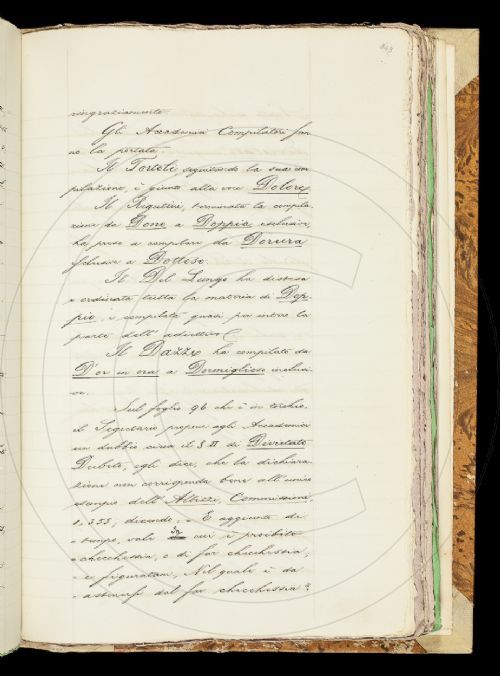 ringraziamento.
Gli Accademici Compilatori fan
no la portata.
Il Tortoli, seguitando la sua com
pilazione, è giunto alla voce Dolore.
Il Rigutini, terminata la compila
zione da Done a Doppia esclusive,
ha preso a compilare da Dorura
inclusive a Dotteso.
Il Del Lungo ha distesa
e ordinata tutta la materia di Dop
pio, e compilata quasi per intero la
parte dell'adiettivo.
Il Dazzi ha compilato da
D'or in ora a Dormiglioso inclusi
ve.
Sul foglio 96 che è in torchio,
il Segretario propone agli Accademici
un dubbio circa il § II di Divietato
Dubita, egli dice, che la dichiara
zione non corrisponda bene all'unico
esempio dell'Albizzi, Commissioni,
1. 355, dicendo: "E aggiunto di
tempo, vale In cui è proibito
checchessia, o di far checchessia;
e figuratam., Nel quale è da
astenersi dal far checchessia"